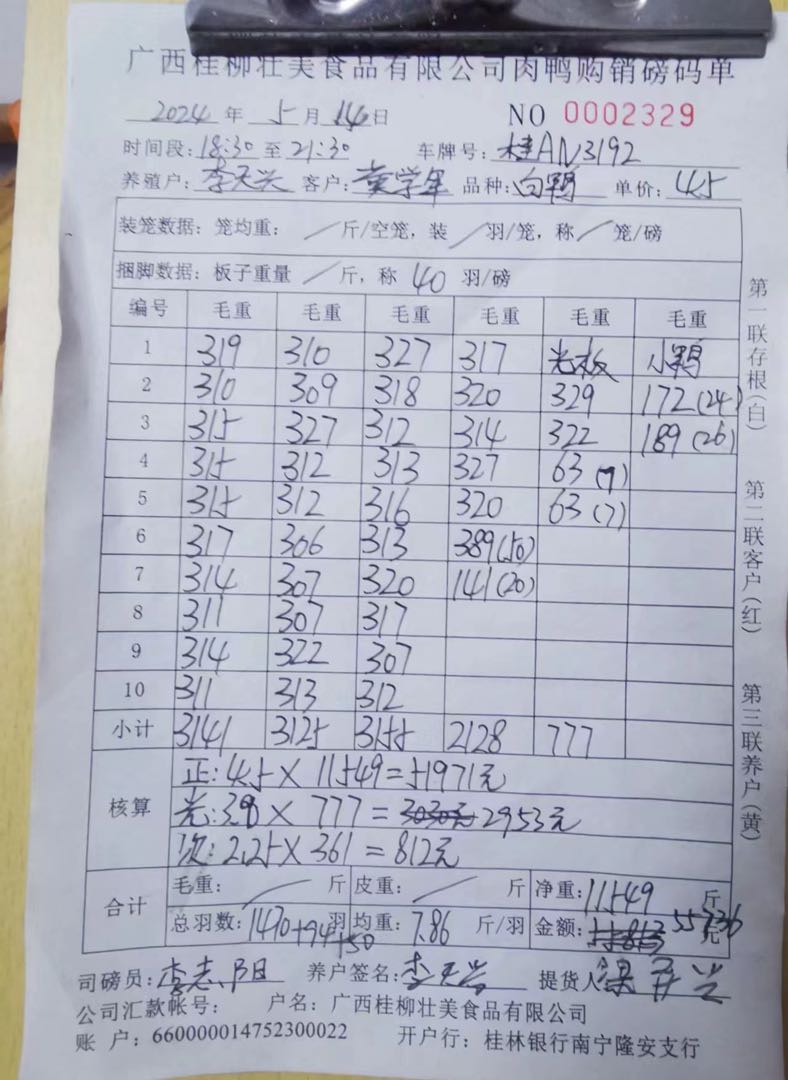 广西桂柳壮美食品有限公司肉鸭购销磅码单
2024 年 5 月 14 日 NO 0002329
时间段: 18:30 至 21:30 车牌号: 桂AN3192
养殖户: 李天兴 客户: 黄学军 品种: 白鸭 单价: 4.5
装笼数据: 笼均重: / 斤/空笼, 装 / 羽/笼, 称 / 笼/磅
捆脚数据: 板子重量 / 斤, 称 40 羽/磅
编号 毛重 毛重 毛重 毛重 毛重 毛重
1 319 310 327 317 光板 小鸭
2 310 309 318 320 329 172(24)
3 315 327 312 314 322 189(26)
4 315 312 313 327 63(7)
5 315 312 316 320 63(7)
6 317 306 313 389(50)
7 314 307 320 141(20)
8 311 307 317
9 314 322 307
10 311 313 312
小计 3141 3125 3155 2128 777
核算
正: 4.5×11549=51971元
光: 3.8×777=3030元 2953元
次: 2.25×361=812元
合计
毛重: / 斤 皮重: / 斤 净重: 11549 斤
总羽数: 1470+94+50 羽 均重: 7.86 斤/羽 金额: 55736 元
司磅员: 李志阳 养户签名: 李天兴 提货人
公司汇款帐号: 户名: 广西桂柳壮美食品有限公司
账 户: 660000014752300022 开户行: 桂林银行南宁隆安支行
第一联存根(白)
第二联客户(红)
第三联养户(黄)